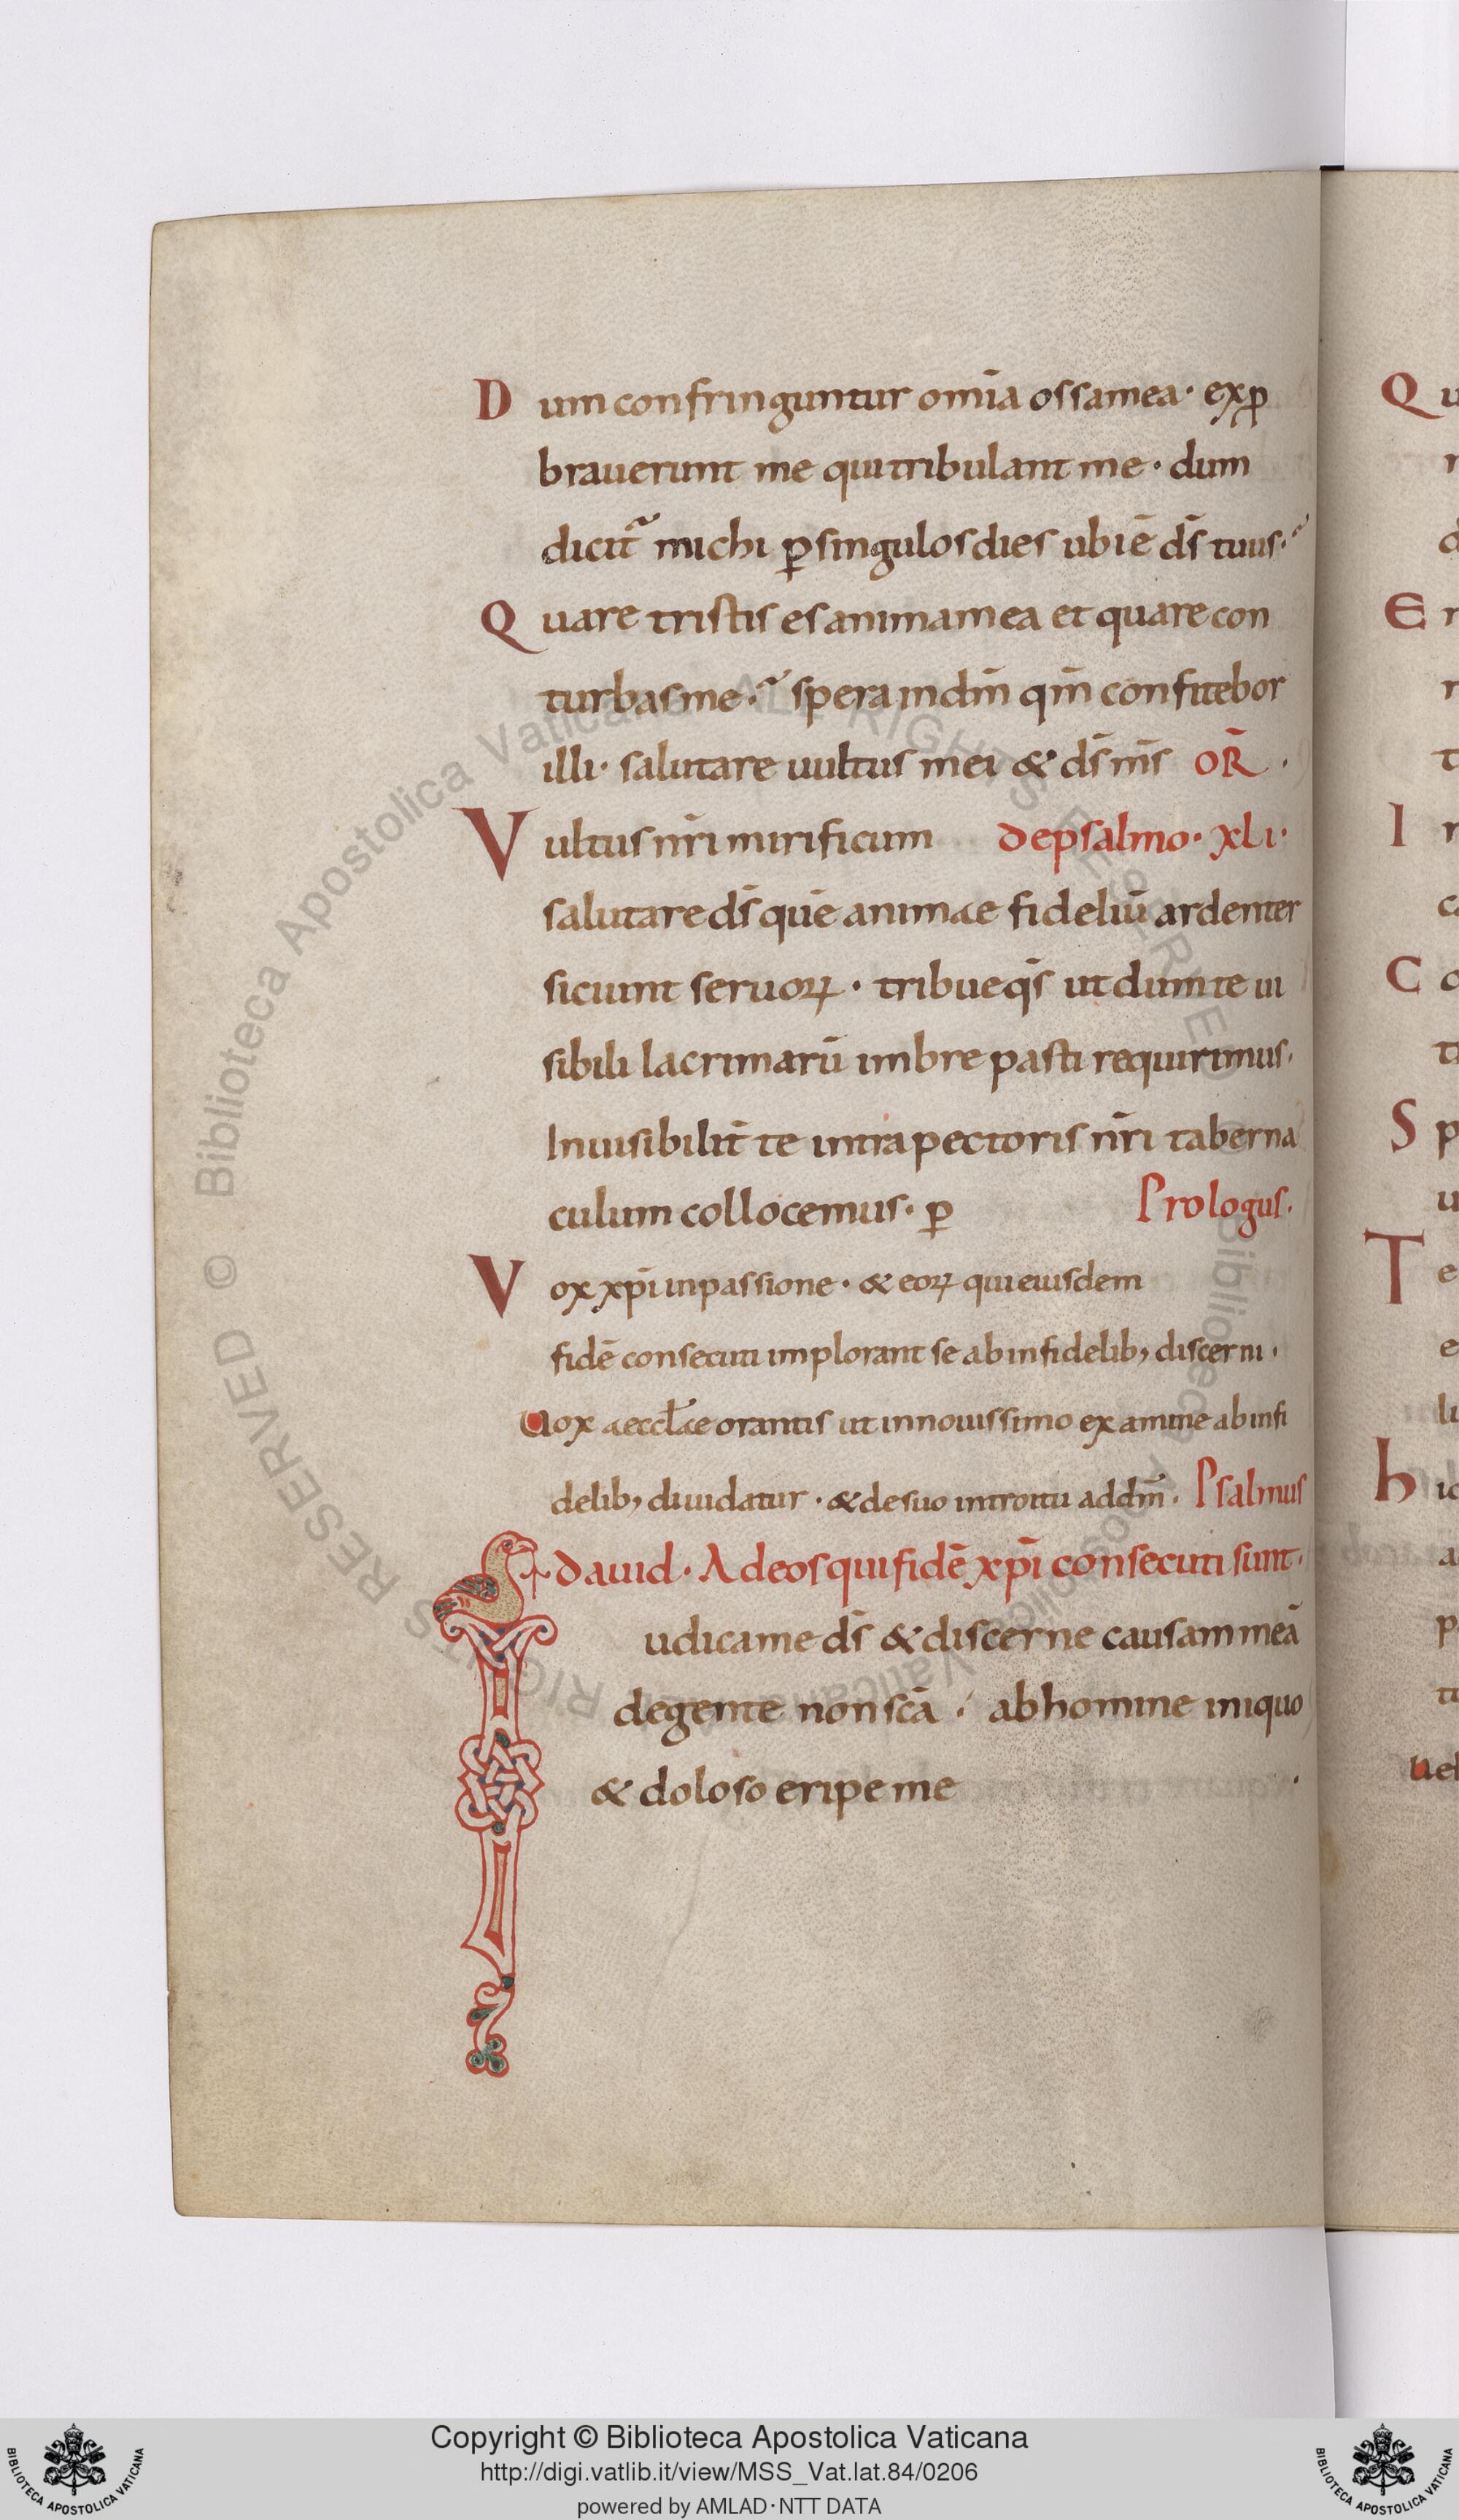 Dum confringuntur om̄ia ossa mea · exꝓ
brauerunt me qui tribulant me · dum
dicit̃ michi ꝑ singulos dies ubi ē d̄s tuus ·
Quare tristis es anima mea et quare con
turbas me · spera in dm̄ qm̄ confitebor
illi · salutare uultus mei & d̄s m̄s OR̄ ·
Vultus nr̄i mirificum de psalmo · xli ·
salutare d̄s quē animae fideliū ardenter
siciunt seruoꝝ · tribue qs̄ ut dum te ui
sibili lacrimarū imbre pasti requirimus ·
Inuisibilit̄ te intra pectoris nr̄i taberna
culum collocemus · ꝑ Prologus ·
Vox xp̄i in passione · & eoꝝ qui eiusdem
fidē consecuti implorant se ab infidelib; discerni ·
Uox aeccl̄ae orantis ut in nouissimo examine ab infi
delib; diuidatur · & de suo introitu ad dm̄ · Psalmus
dauid · Ad eos qui fidē xp̄i consecuti sunt ·
Iudica me d̄s & discerne causam meā
de gente non scā · ab homine iniquo
& doloso eripe me ·
Copyright © Biblioteca Apostolica Vaticana
http://digi.vatlib.it/view/MSS_Vat.lat.84/0206
powered by AMLAD·NTT DATA
BIBLIOTECA APOSTOLICA VATICANA
BIBLIOTECA APOSTOLICA VATICANA